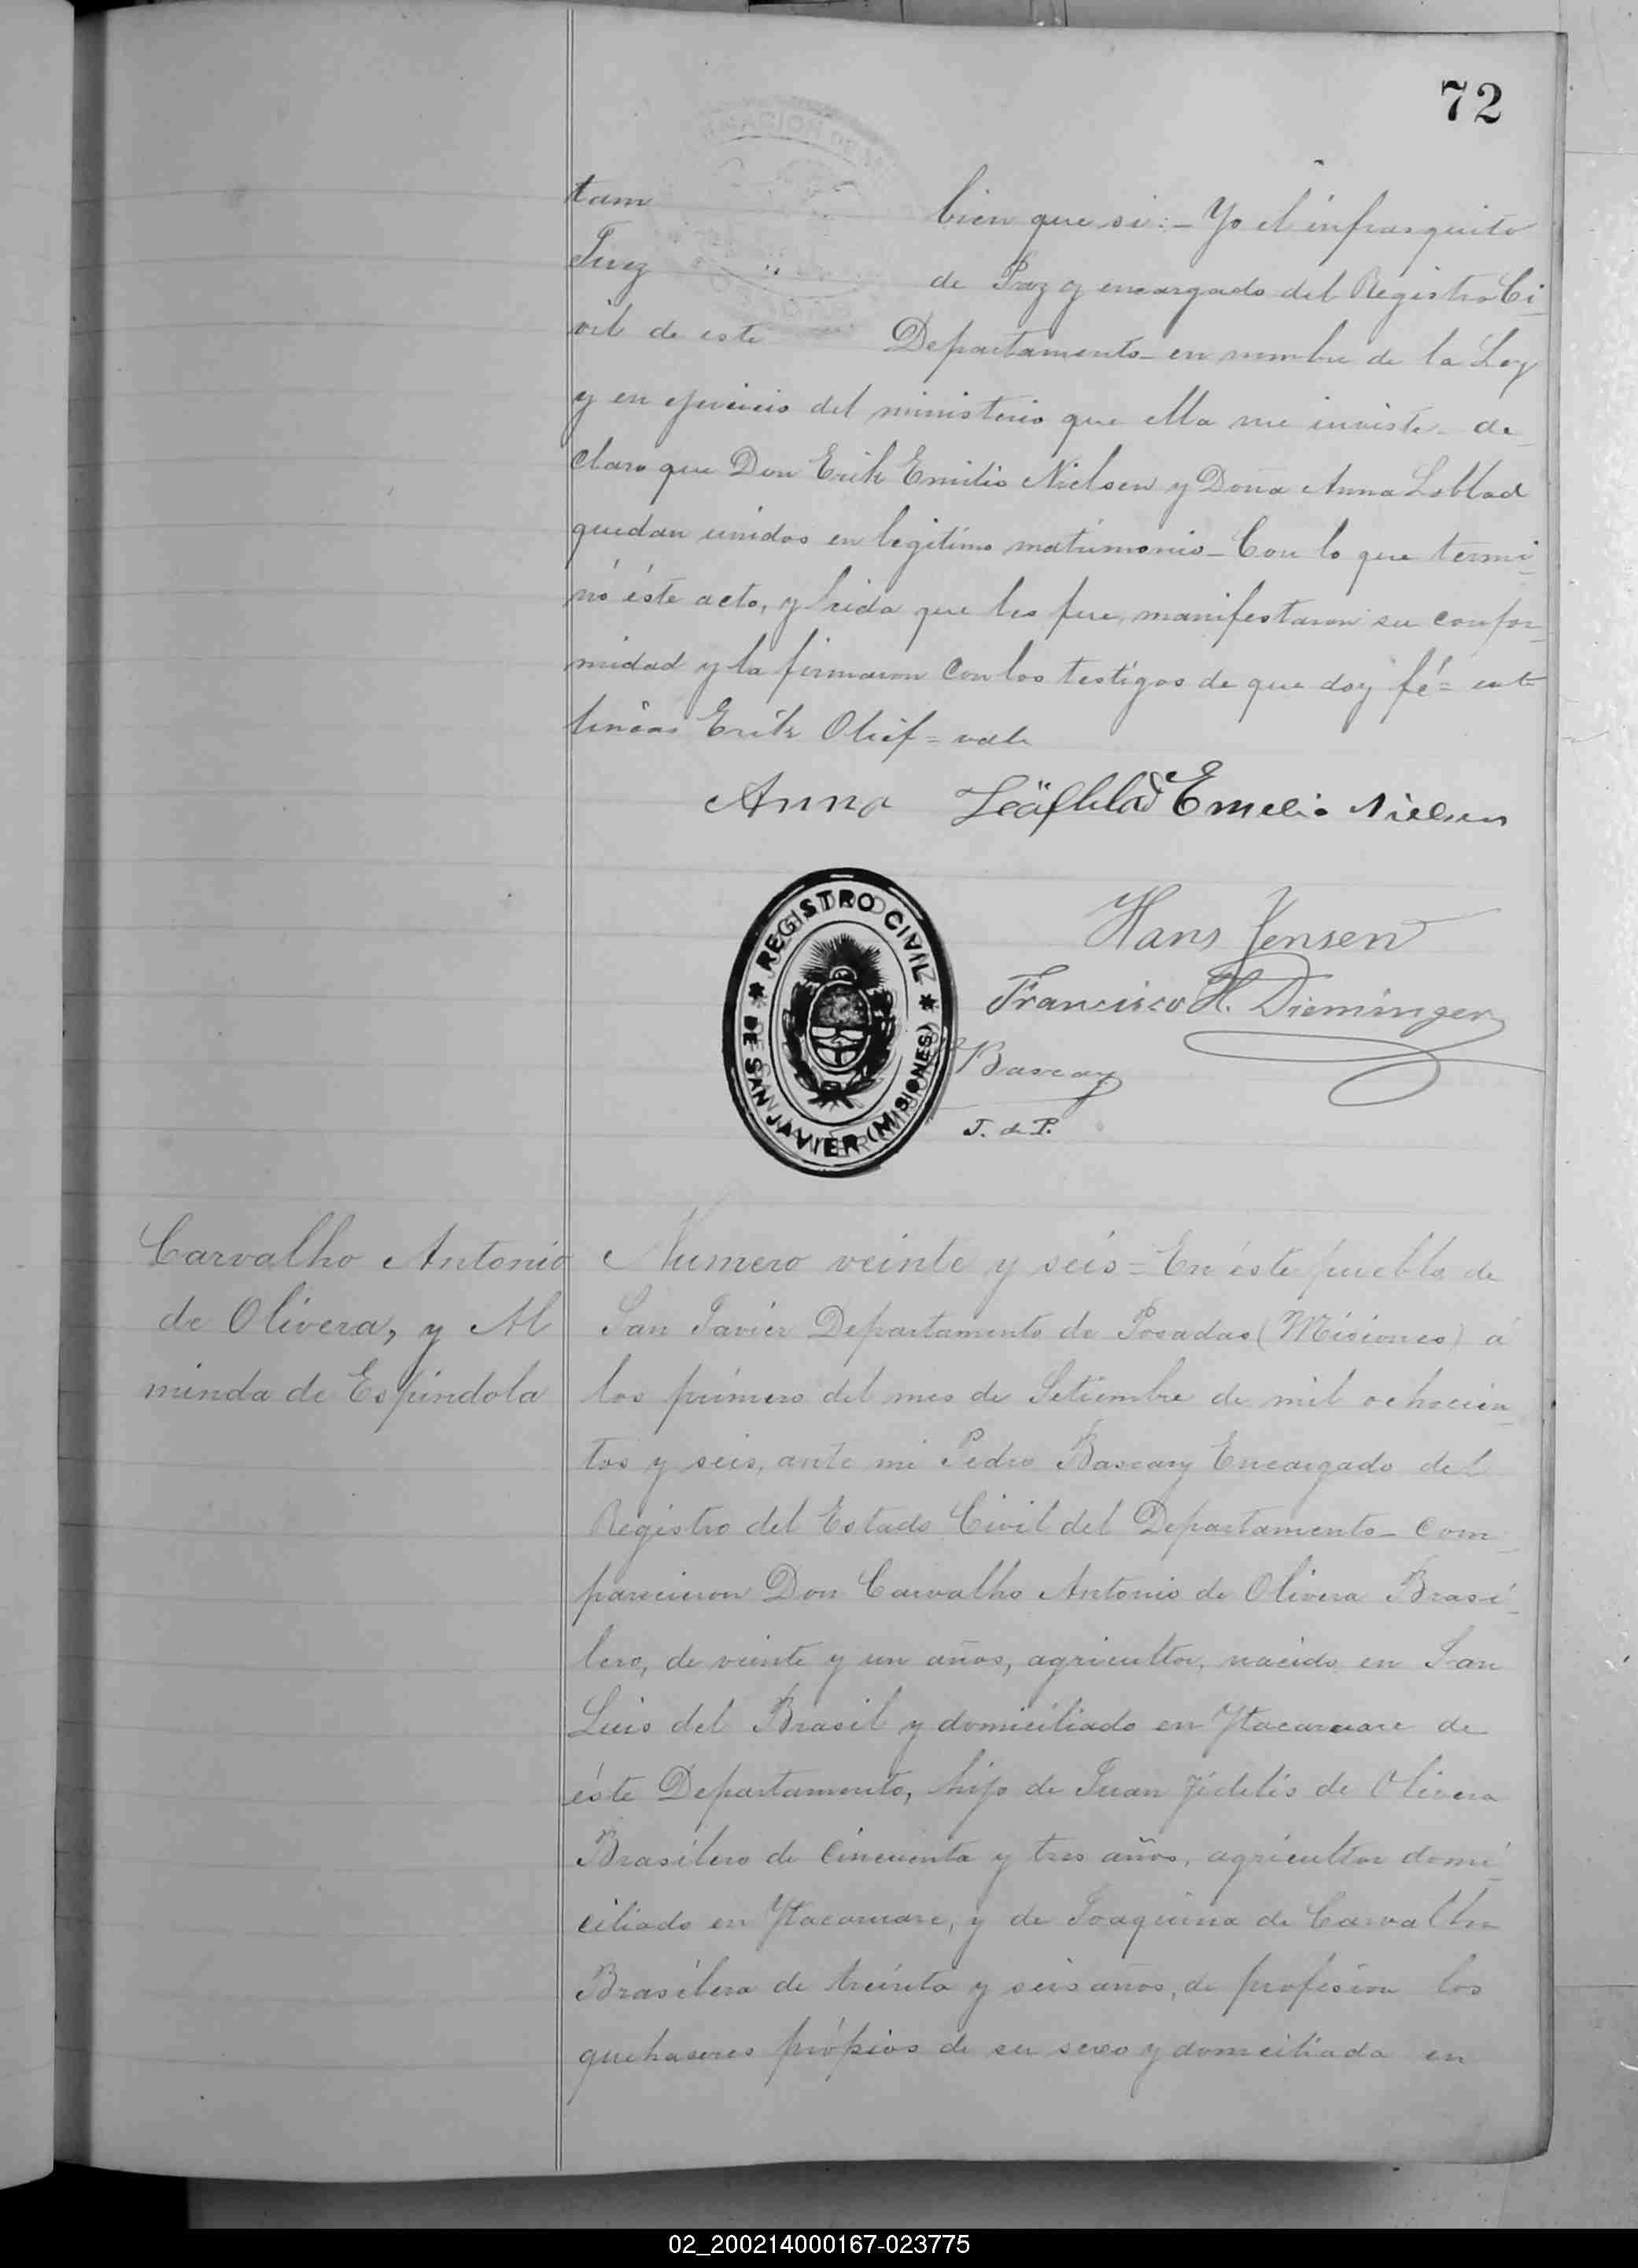 72
tam bien que si:_ Yo el infrasquito
Juez de Paz y encargado del Registro Ci_
vil de este Departamento_ en nombre de la Ley
y en ejercicio del ministerio que ella me inviste_ de_
claro que Don Erik Emilio Nielsen y Doña Anna Loblad
quedan unidos en legítimo matrimonio_ Con lo que termi_
nó éste acto, y leida que les fue, manifestaron su confor_
midad y la firmaron con los testigos de que doy fé= ent
lineas Erik Olief= vale
Anna Leäfblad Emelio Nielsen
Hans Jensen
Francisco H. Dieminger
Bascary
J. de P.
* REGISTRO CIVIL *
DE SAN JAVIER (MISIONES)
Carvalho Antonio
de Olivera, y Al
minda de Espindola
Numero veinte y seis= En éste pueblo de
San Javier Departamento de Posadas (Misiones) á
los primero del mes de Setiembre de mil ochocien_
tos y seis, ante mi Pedro Bascary Encargado del
Registro del Estado Civil del Departamento_ Com_
parecieron Don Carvalho Antonio de Olivera Brasi_
lero, de veinte y un años, agricultor, nacido en San
Luis del Brasil y domiciliado en Ytacaruare de
éste Departamento, hijo de Juan Fidelis de Olivera
Brasilero de cincuenta y tres años, agricultor domi_
ciliado en Ytacaruare, y de Joaquina de Carvalho
Brasilera de treinta y seis años, de profesion los
quehaseres própios de su sexo y domiciliada en
02_200214000167-023775